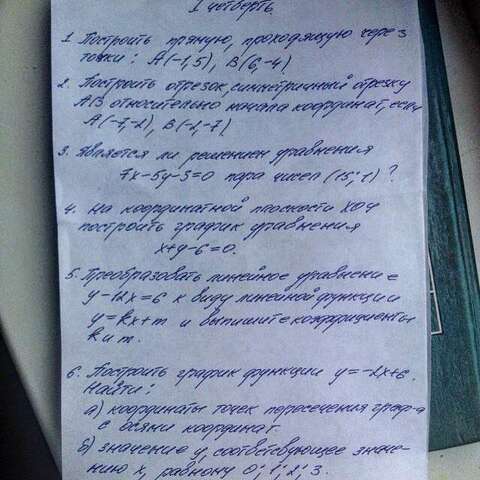 1 четверть
1. Построить прямую, проходящую через
точки: А(-1,5), В(6,-4)
2. Построить отрезок, симметричный отрезку
АВ относительно начала координат, если
А(-7,-2), В(-2,-7)
3. Является ли решением уравнения
7х-5у-3=0 пара чисел (15; 1)?
4. На координатной плоскости ХОУ
построить график уравнения
х+у-6=0.
5. Преобразовать линейное уравнение
у-12х=6 к виду линейной функции
у=kх+m и выпишите коэффициенты
k и m.
6. Построить график функции у=-2х+6.
Найти:
а) координаты точек пересечения граф-а
с осями координат.
б) значение у, соответствующее значе-
нию х, равному 0; 1; 2; 3.